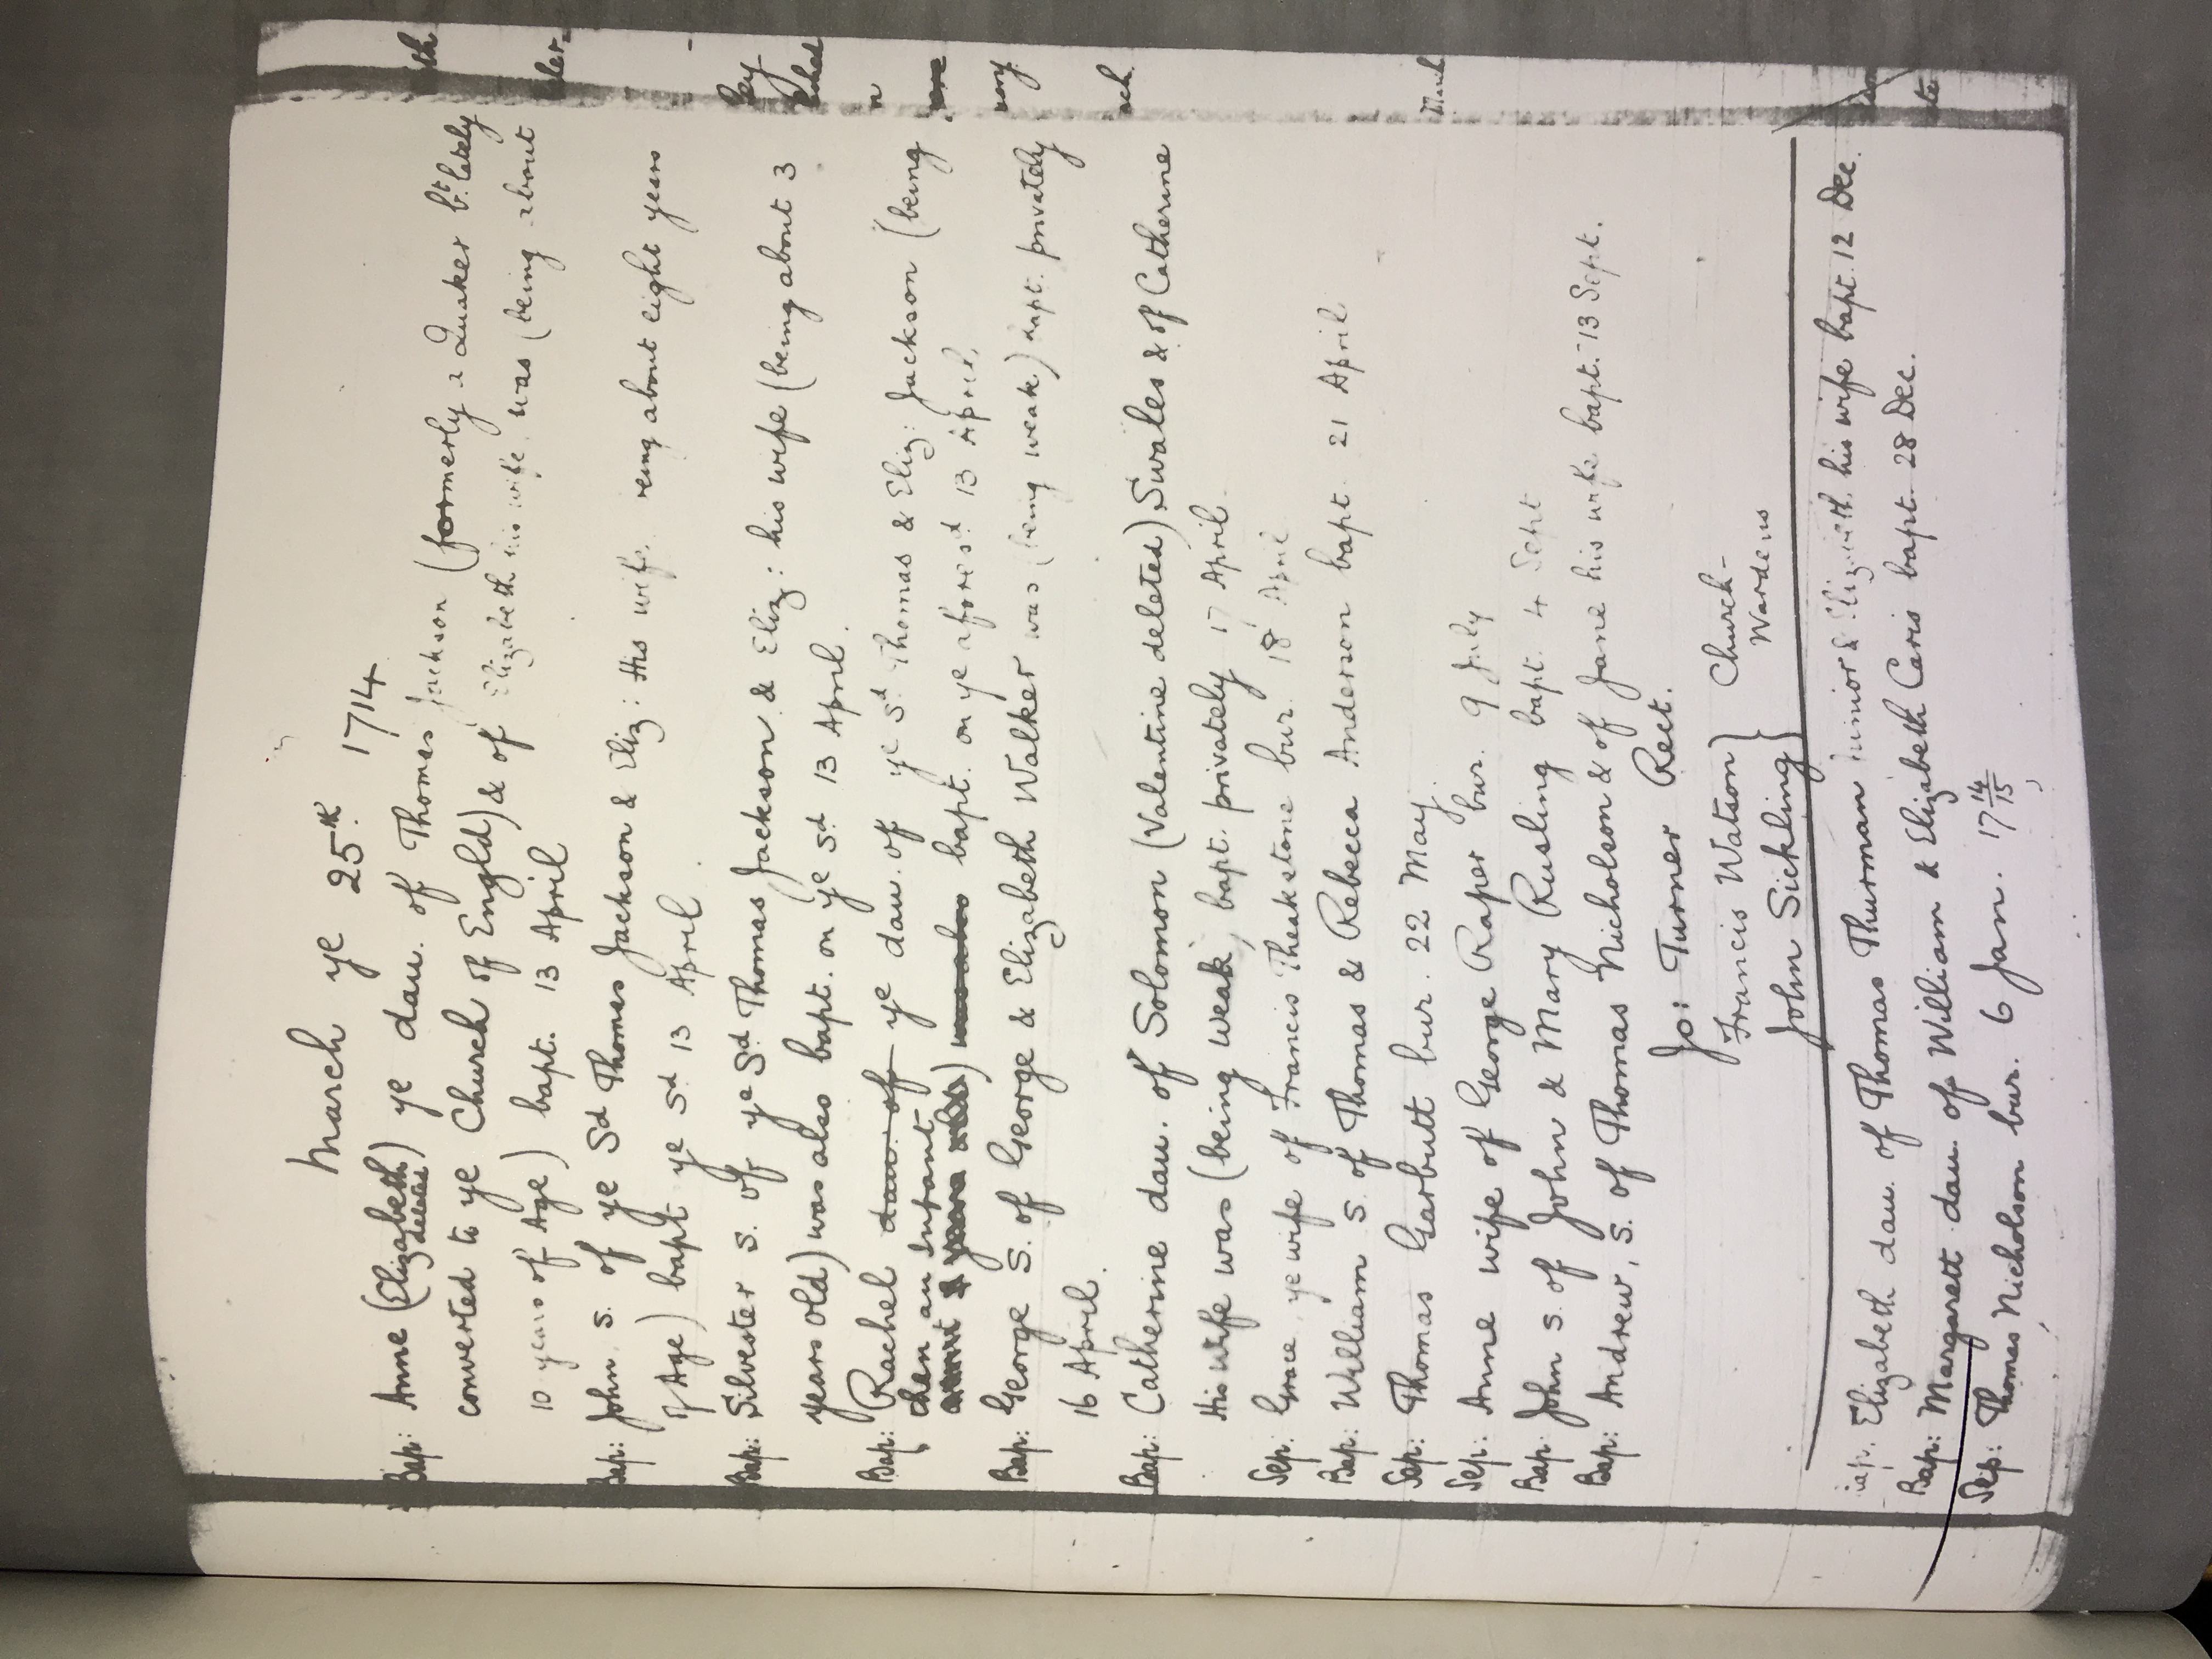 March ye 25th 1714
Bap: Anne (Elizabeth deleted) ye dau. of Thomas Jackson (formerly a Quaker bt. lately
converted to ye Church of Engld) & of Elizabeth his wife was (being about
10 years of Age) bapt. 13 April
Bap: John s. of ye Sd Thomas Jackson & Eliz: His wife being about eight years
of Age) bapt ye Sd 13 April
Bap: Silvester s. of ye Sd Thomas Jackson & Eliz: his wife (being about 3
years old) was also bapt. on ye Sd 13 April.
Bap: Rachel dau. of ye dau. of ye Sd Thomas & Eliz: Jackson (being
then an Infant) was also bapt. on ye aforesd 13 April.
years old
Bap: George S. of George & Elizabeth Walker was (being weak) bapt. privately
16 April.
Bap: Catherine dau. of Solomon (Valentine deleted) Swales & of Catherine
His wife was (being weak) bapt. privately 17 April.
Sep: Grace, ye wife of Francis Theakstone bur. 18 April
Bap: William S. of Thomas & Rebecca Anderson bapt. 21 April
Sep: Thomas Garbutt bur. 22 May.
Sep: Anne wife of George Raper bur. 9 July
Bap: John s. of John & Mary Rusling bapt. 4 Sept
Bap: Andrew, s. of Thomas Nicholson & of Jane his wife bapt. 13 Sept.
Jo: Turner Rect.
Francis Watson } Church-
John Sickling } Wardens
Bap. Elizabeth dau. of Thomas Thurman Junior & Elizabeth his wife bapt. 12 Dec.
Bap: Margarett dau. of William & Elizabeth Caris bapt. 28 Dec.
Sep: Thomas Nicholson bur. 6 Jan. 17 14/15